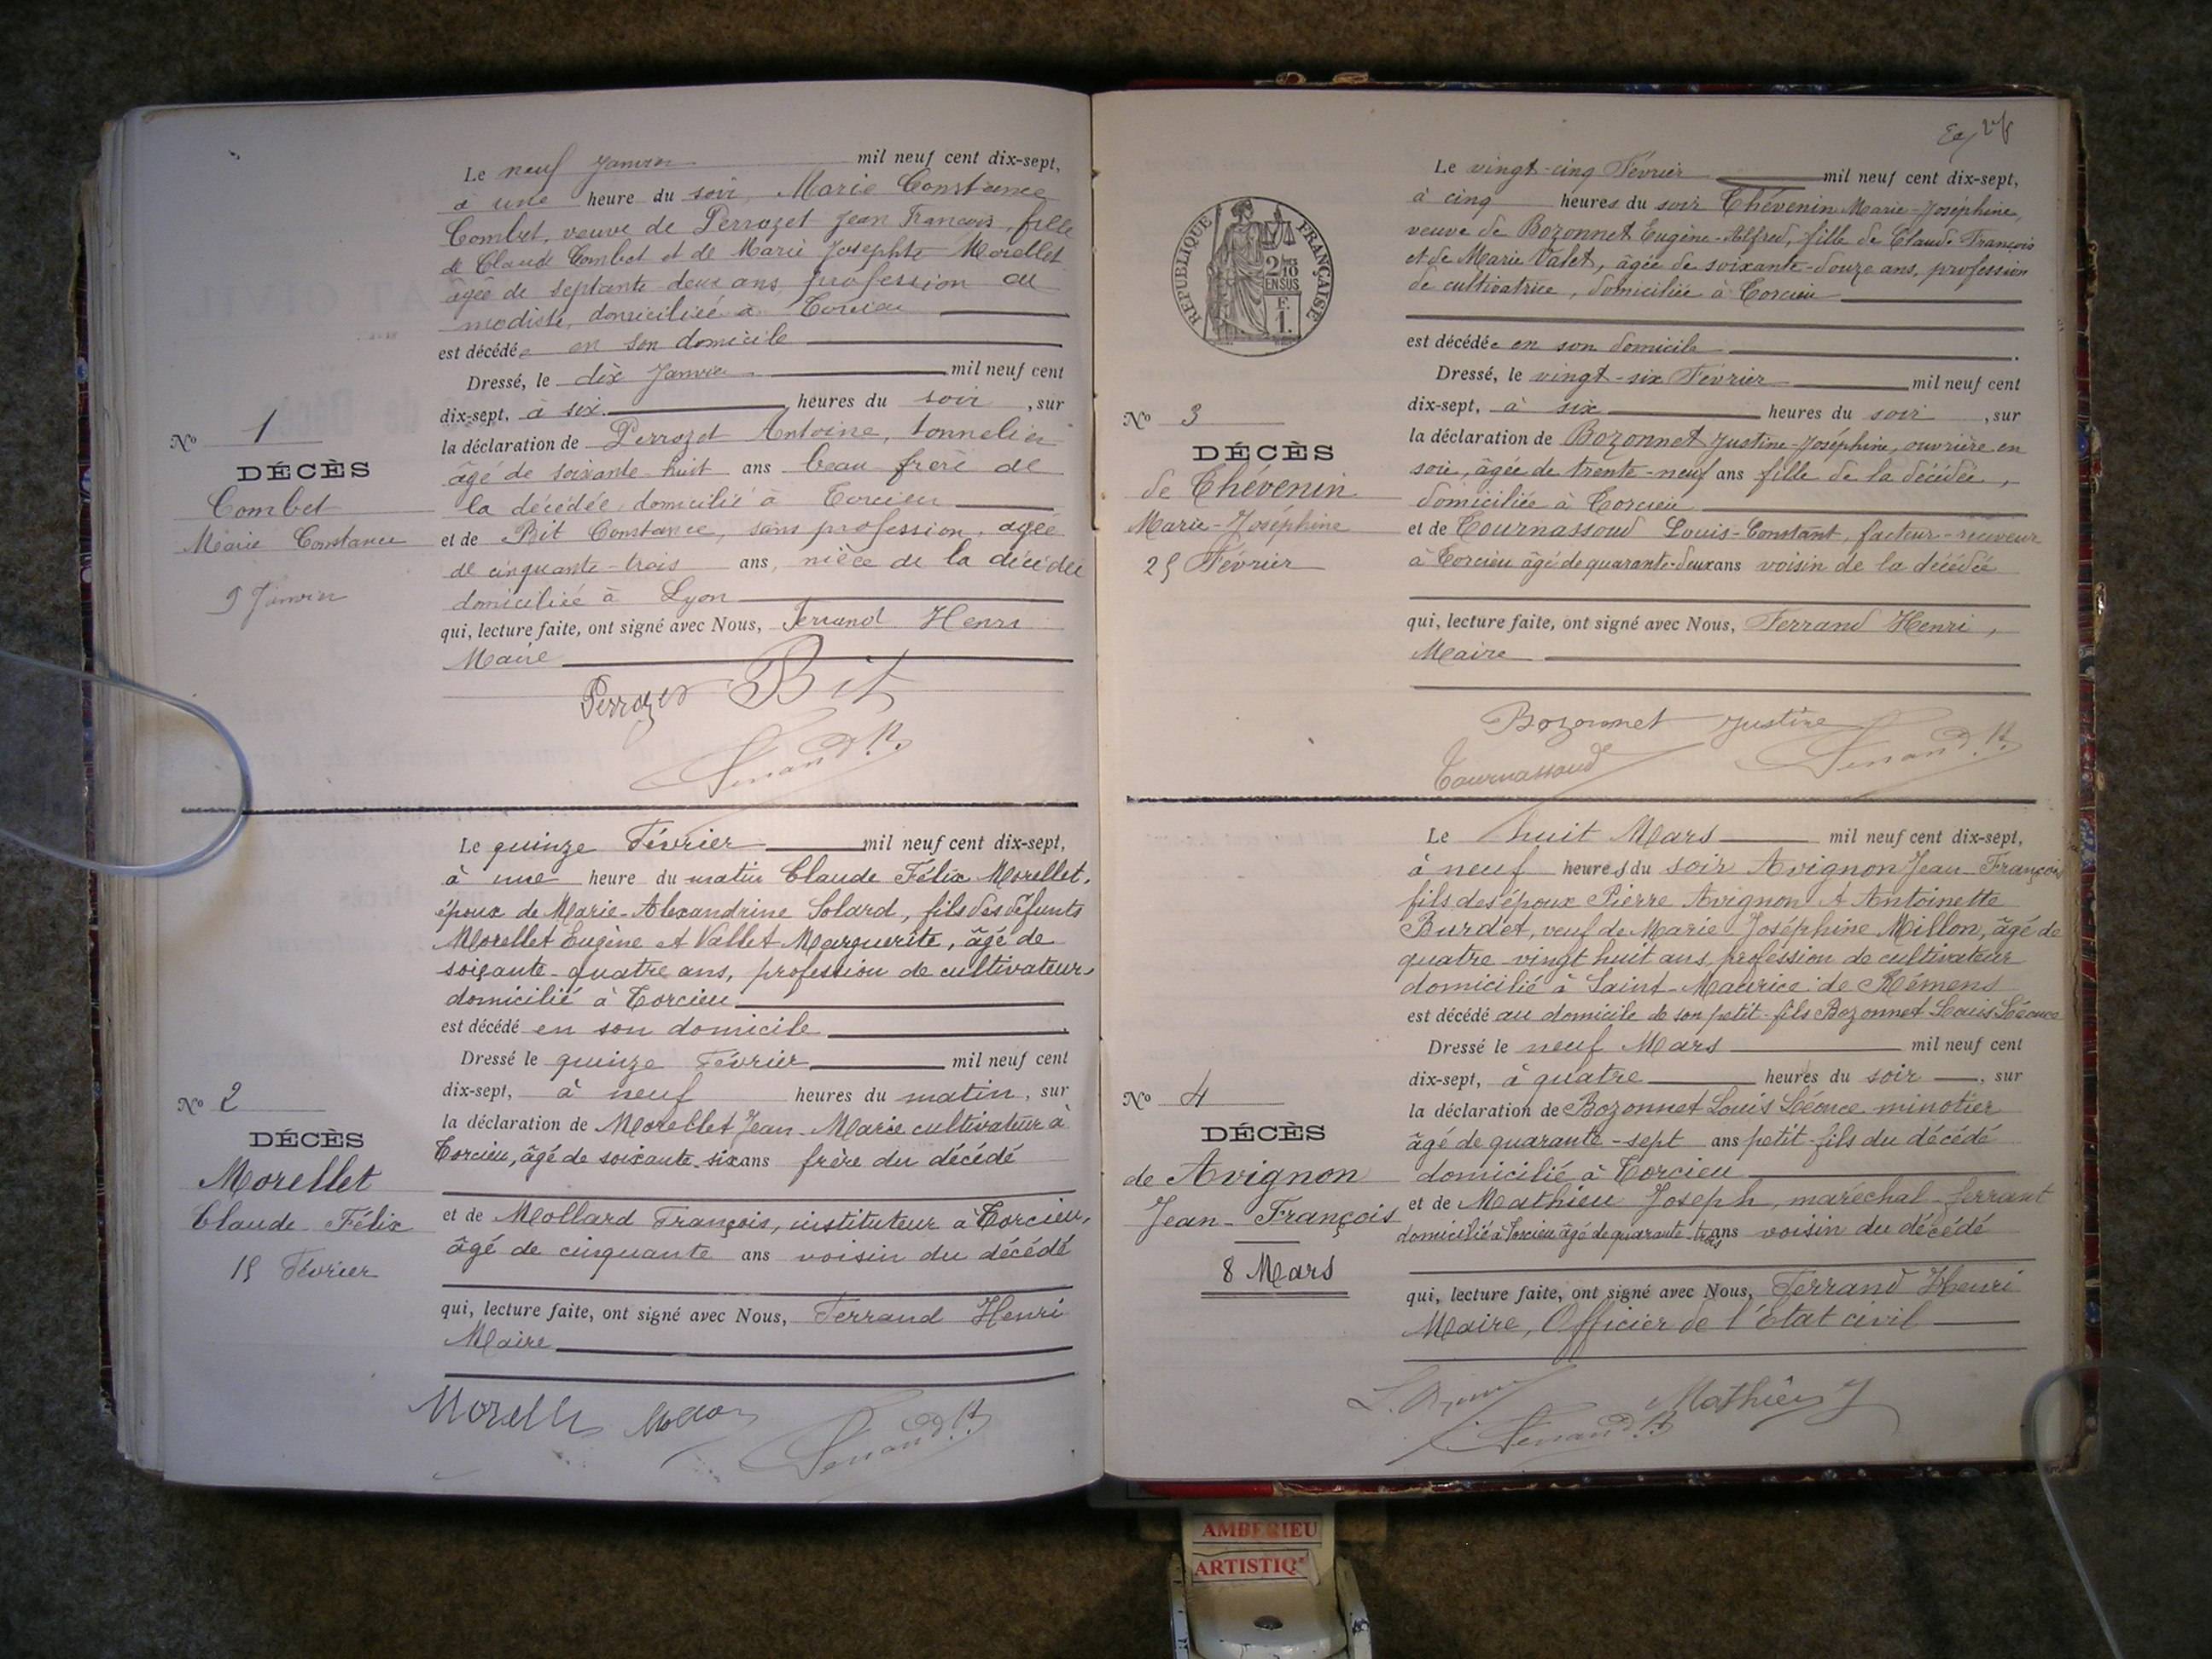 Le neuf Janvier mil neuf cent dix-sept,
à une heure du soir, Marie Constance
Combet, veuve de Perrozet Jean François, fille
de Claude Combet et de Marie Josephte Morellet
âgée de septante deux ans profession de
modiste, domiciliée à Torcieu
est décédée en son domicile
Dressé, le dix Janvier mil neuf cent
dix-sept, à six heures du soir, sur
la déclaration de Perrozet Antoine, tonnelier
âgé de soixante huit ans beau frère de
la décédée, domicilié à Torcieu
et de Bit Constance, sans profession, agée
de cinquante-trois ans, nièce de la décédée
domiciliée à Lyon
qui, lecture faite, ont signé avec Nous, Ferrand Henri
Maire
Perrozet Bit
Ferrand. H.
No 1
DÉCÈS
Combet
Marie Constance
9 Janvier
Le quinze Février mil neuf cent dix-sept,
à une heure du matin Claude Félix Morellet,
époux de Marie-Alexandrine Solard, fils des défunts
Morellet Eugène et Vallet Marguerite, âgé de
soiçante-quatre ans, profession de cultivateur,
domicilié à Torcieu
est décédé en son domicile
Dressé le quinze Février mil neuf cent
dix-sept, à neuf heures du matin, sur
la déclaration de Morellet Jean-Marie cultivateur à
Torcieu, âgé de soixante-six ans frère du décédé
et de Mollard François, instituteur à Torcieu,
âgé de cinquante ans voisin du décédé
qui, lecture faite, ont signé avec Nous, Ferrand Henri
Maire
Ferrand. H.
No 2
DÉCÈS
Morellet
Claude Félix
15 Février
RÉPUBLIQUE FRANÇAISE
2/10
EN SUS
F.
1.
Le vingt-cinq Février mil neuf cent dix-sept,
à cinq heures du soir Thévenin Marie-Joséphine,
veuve de Bozonnet Eugène-Alfred, fille de Claude François
et de Marie Valet, âgée de soixante-douze ans, profession
de cultivatrice, domiciliée à Torcieu
est décédée en son domicile
Dressé, le vingt-six Février mil neuf cent
dix-sept, à six heures du soir, sur
la déclaration de Bozonnet Justine-Joséphine, ouvrière en
soie, âgée de trente-neuf ans fille de la décédée,
domiciliée à Torcieu
et de Tournassoud Louis-Constant, facteur-receveur
à Torcieu âgé de quarante-deux ans voisin de la décédée
qui, lecture faite, ont signé avec Nous, Ferrand Henri,
Maire
Bozonnet Justine
Tournassoud
Ferrand. H.
No 3
DÉCÈS
de Thévenin
Marie-Joséphine
25 Février
Le huit Mars mil neuf cent dix-sept,
à neuf heures du soir Avignon Jean-François
fils des époux Pierre Avignon et Antoinette
Burdet, veuf de Marie-Joséphine Millon, âgé de
quatre-vingt huit ans, profession de cultivateur
domicilié à Saint-Maurice-de Rémens
est décédé au domicile de son petit-fils Bozonnet Louis Léonce
Dressé le neuf Mars mil neuf cent
dix-sept, à quatre heures du soir, sur
la déclaration de Bozonnet Louis Léonce minotier
âgé de quarante-sept ans petit-fils du décédé
domicilié à Torcieu
et de Mathieu Joseph, maréchal-ferrant
domicilié à Torcieu âgé de quarante-trois ans voisin du décédé
qui, lecture faite, ont signé avec Nous, Ferrand Henri
Maire, Officier de l'État civil
Mathieu J
Ferrand. H
No 4
DÉCÈS
de Avignon
Jean-François
8 Mars
AMBERIEU
ARTISTIQ